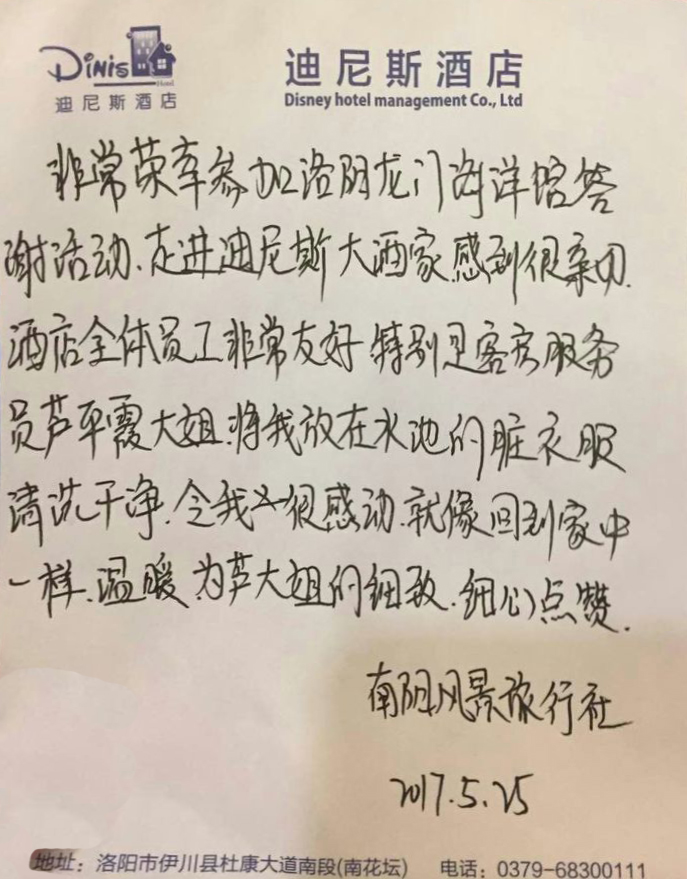 Dinis
Hotel
迪尼斯酒店
迪尼斯酒店
Disney hotel management Co., Ltd
非常荣幸参加洛阳龙门海洋馆答
谢活动、走进迪尼斯大酒家感到很亲切.
酒店全体员工非常友好 特别是客房服务
员芦平霞大姐.将我放在水池的脏衣服
清洗干净.令我很感动.就像回到家中
一样、温暖 为芦大姐的细致.细心点赞.
南阳风景旅行社
2017.5.25
地址：洛阳市伊川县杜康大道南段(南花坛) 电话：0379-68300111